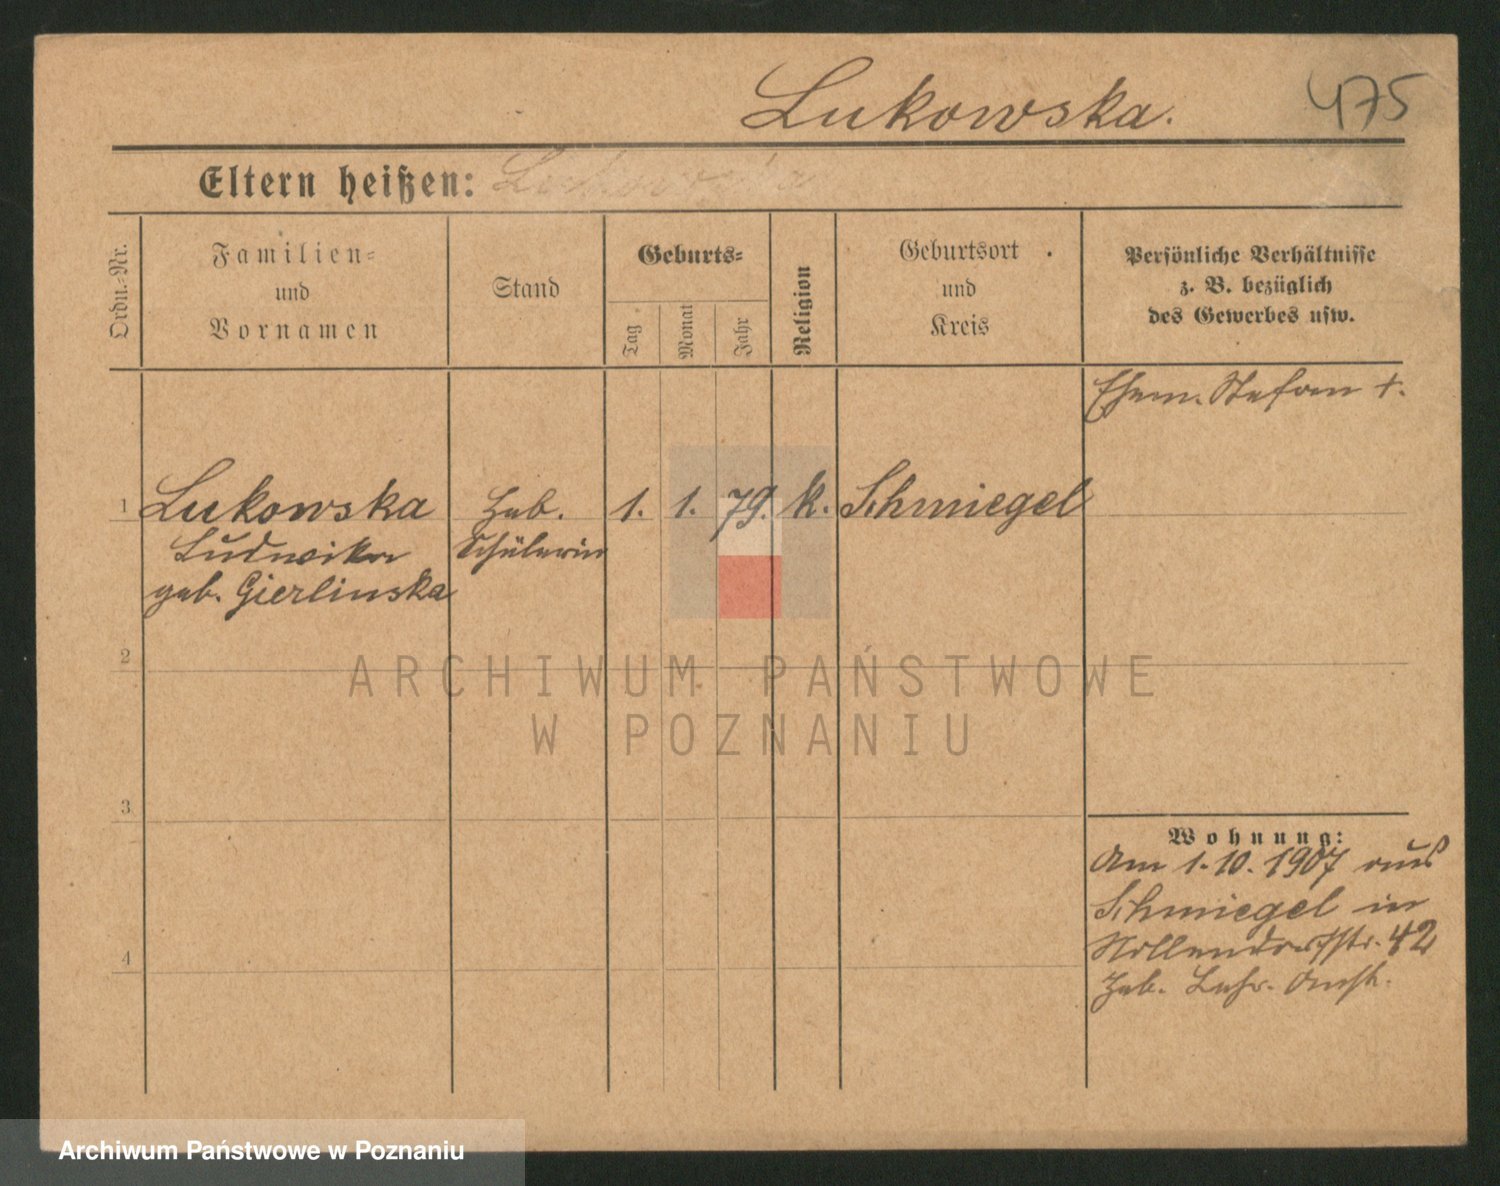 Lukowska.
475
Eltern heißen: Lukowska
Ordn.-Nr.
Familien-
und
Vornamen
Stand
Geburts-
Tag
Monat
Jahr
Religion
Geburtsort
und
Kreis
Persönliche Verhältnisse
z. B. bezüglich
des Gewerbes usw.
Ehem. Stefan †.
1 Lukowska Heb. 1. 1. 79. k. Schmiegel
Ludwika Schülerin
geb. Gierlinska
2
ARCHIWUM PAŃSTWOWE
W POZNANIU
3
Wohnung:
Am 1.10.1907 aus
Schmiegel in
Nollendorfstr. 42
Heb. Lehr. Anst.
4
Archiwum Państwowe w Poznaniu